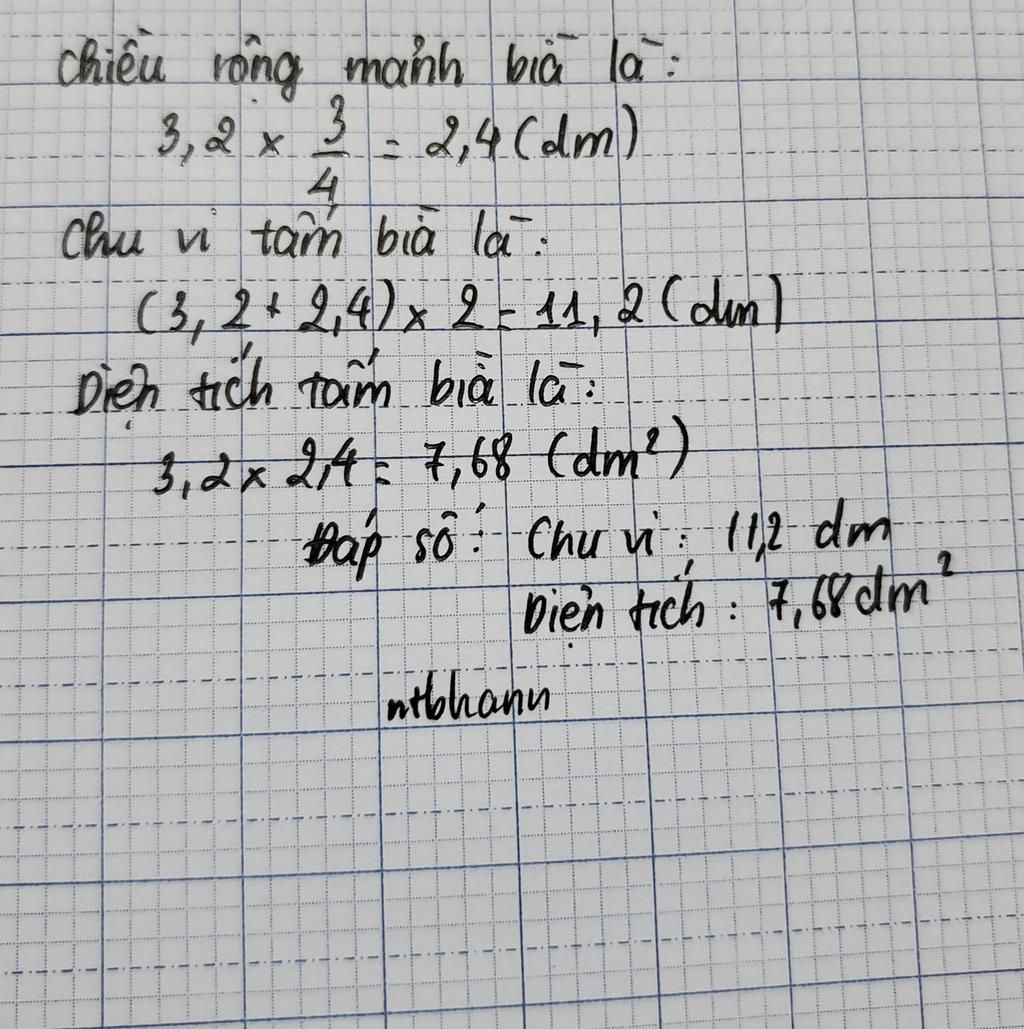 Chiều rộng mảnh bìa là:
3,2 × 3/4 = 2,4 (dm)
Chu vi tấm bìa là:
(3,2 + 2,4) × 2 = 11,2 (dm)
Diện tích tấm bìa là:
3,2 × 2,4 = 7,68 (dm²)
Đáp số: Chu vi: 11,2 dm
Diện tích: 7,68 dm²
ntbhann